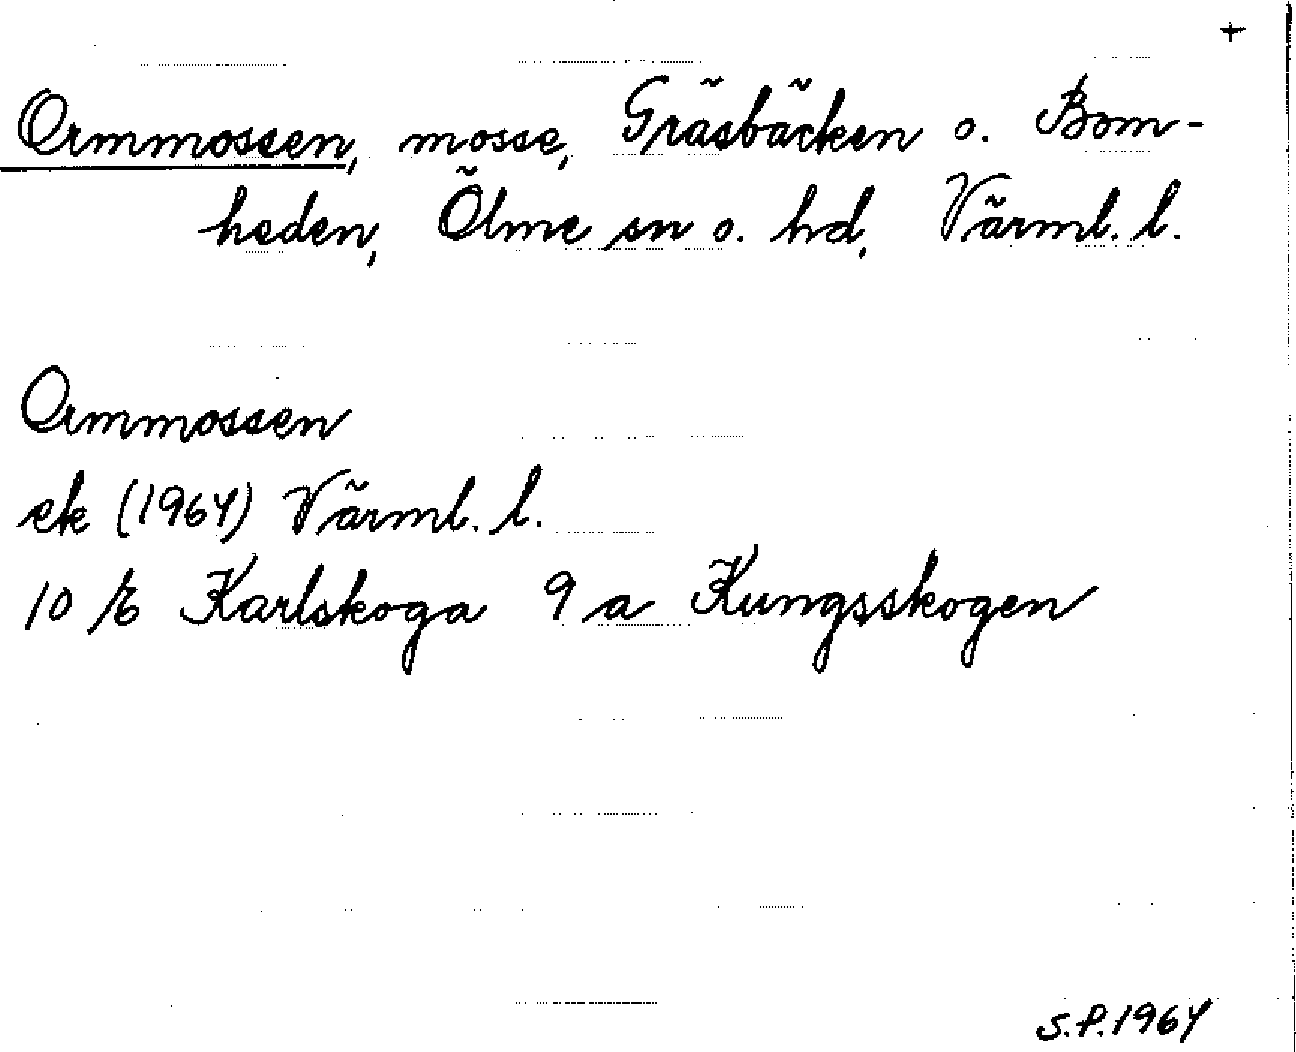 +
Ormmossen, mosse, Gräsbäcken o. Bom-
heden, Ölme sn o. hd, Värml. l.
Ormmossen
ek (1964) Värml. l.
10 E Karlskoga 9 a Kungsskogen
S.P. 1964